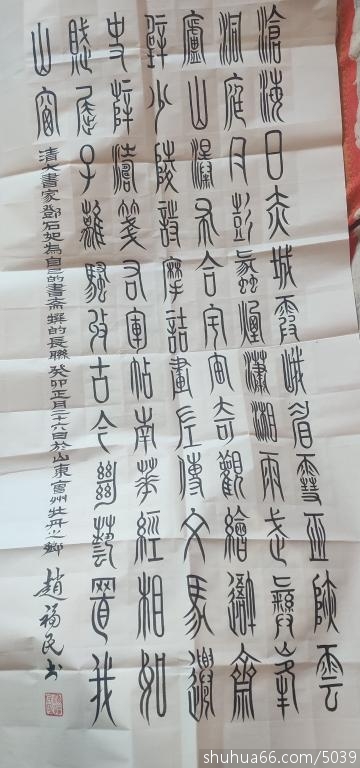 滄海日赤城霞峨眉雪巫峽雲
洞庭月彭蠡煙瀟湘雨武彝峯
廬山瀑布合宇宙奇觀繪吾齋
壁少陵詩摩詰畫左傳文馬遷
史薛濤箋右軍帖南華經相如
賦屈子離騷收古今絕藝置我
山窗
清大書家鄧石如為自己的書斎撰的長聯癸卯正月二十六日於山東曹州牡丹之鄉
趙福民书
shuhua66.com/5039